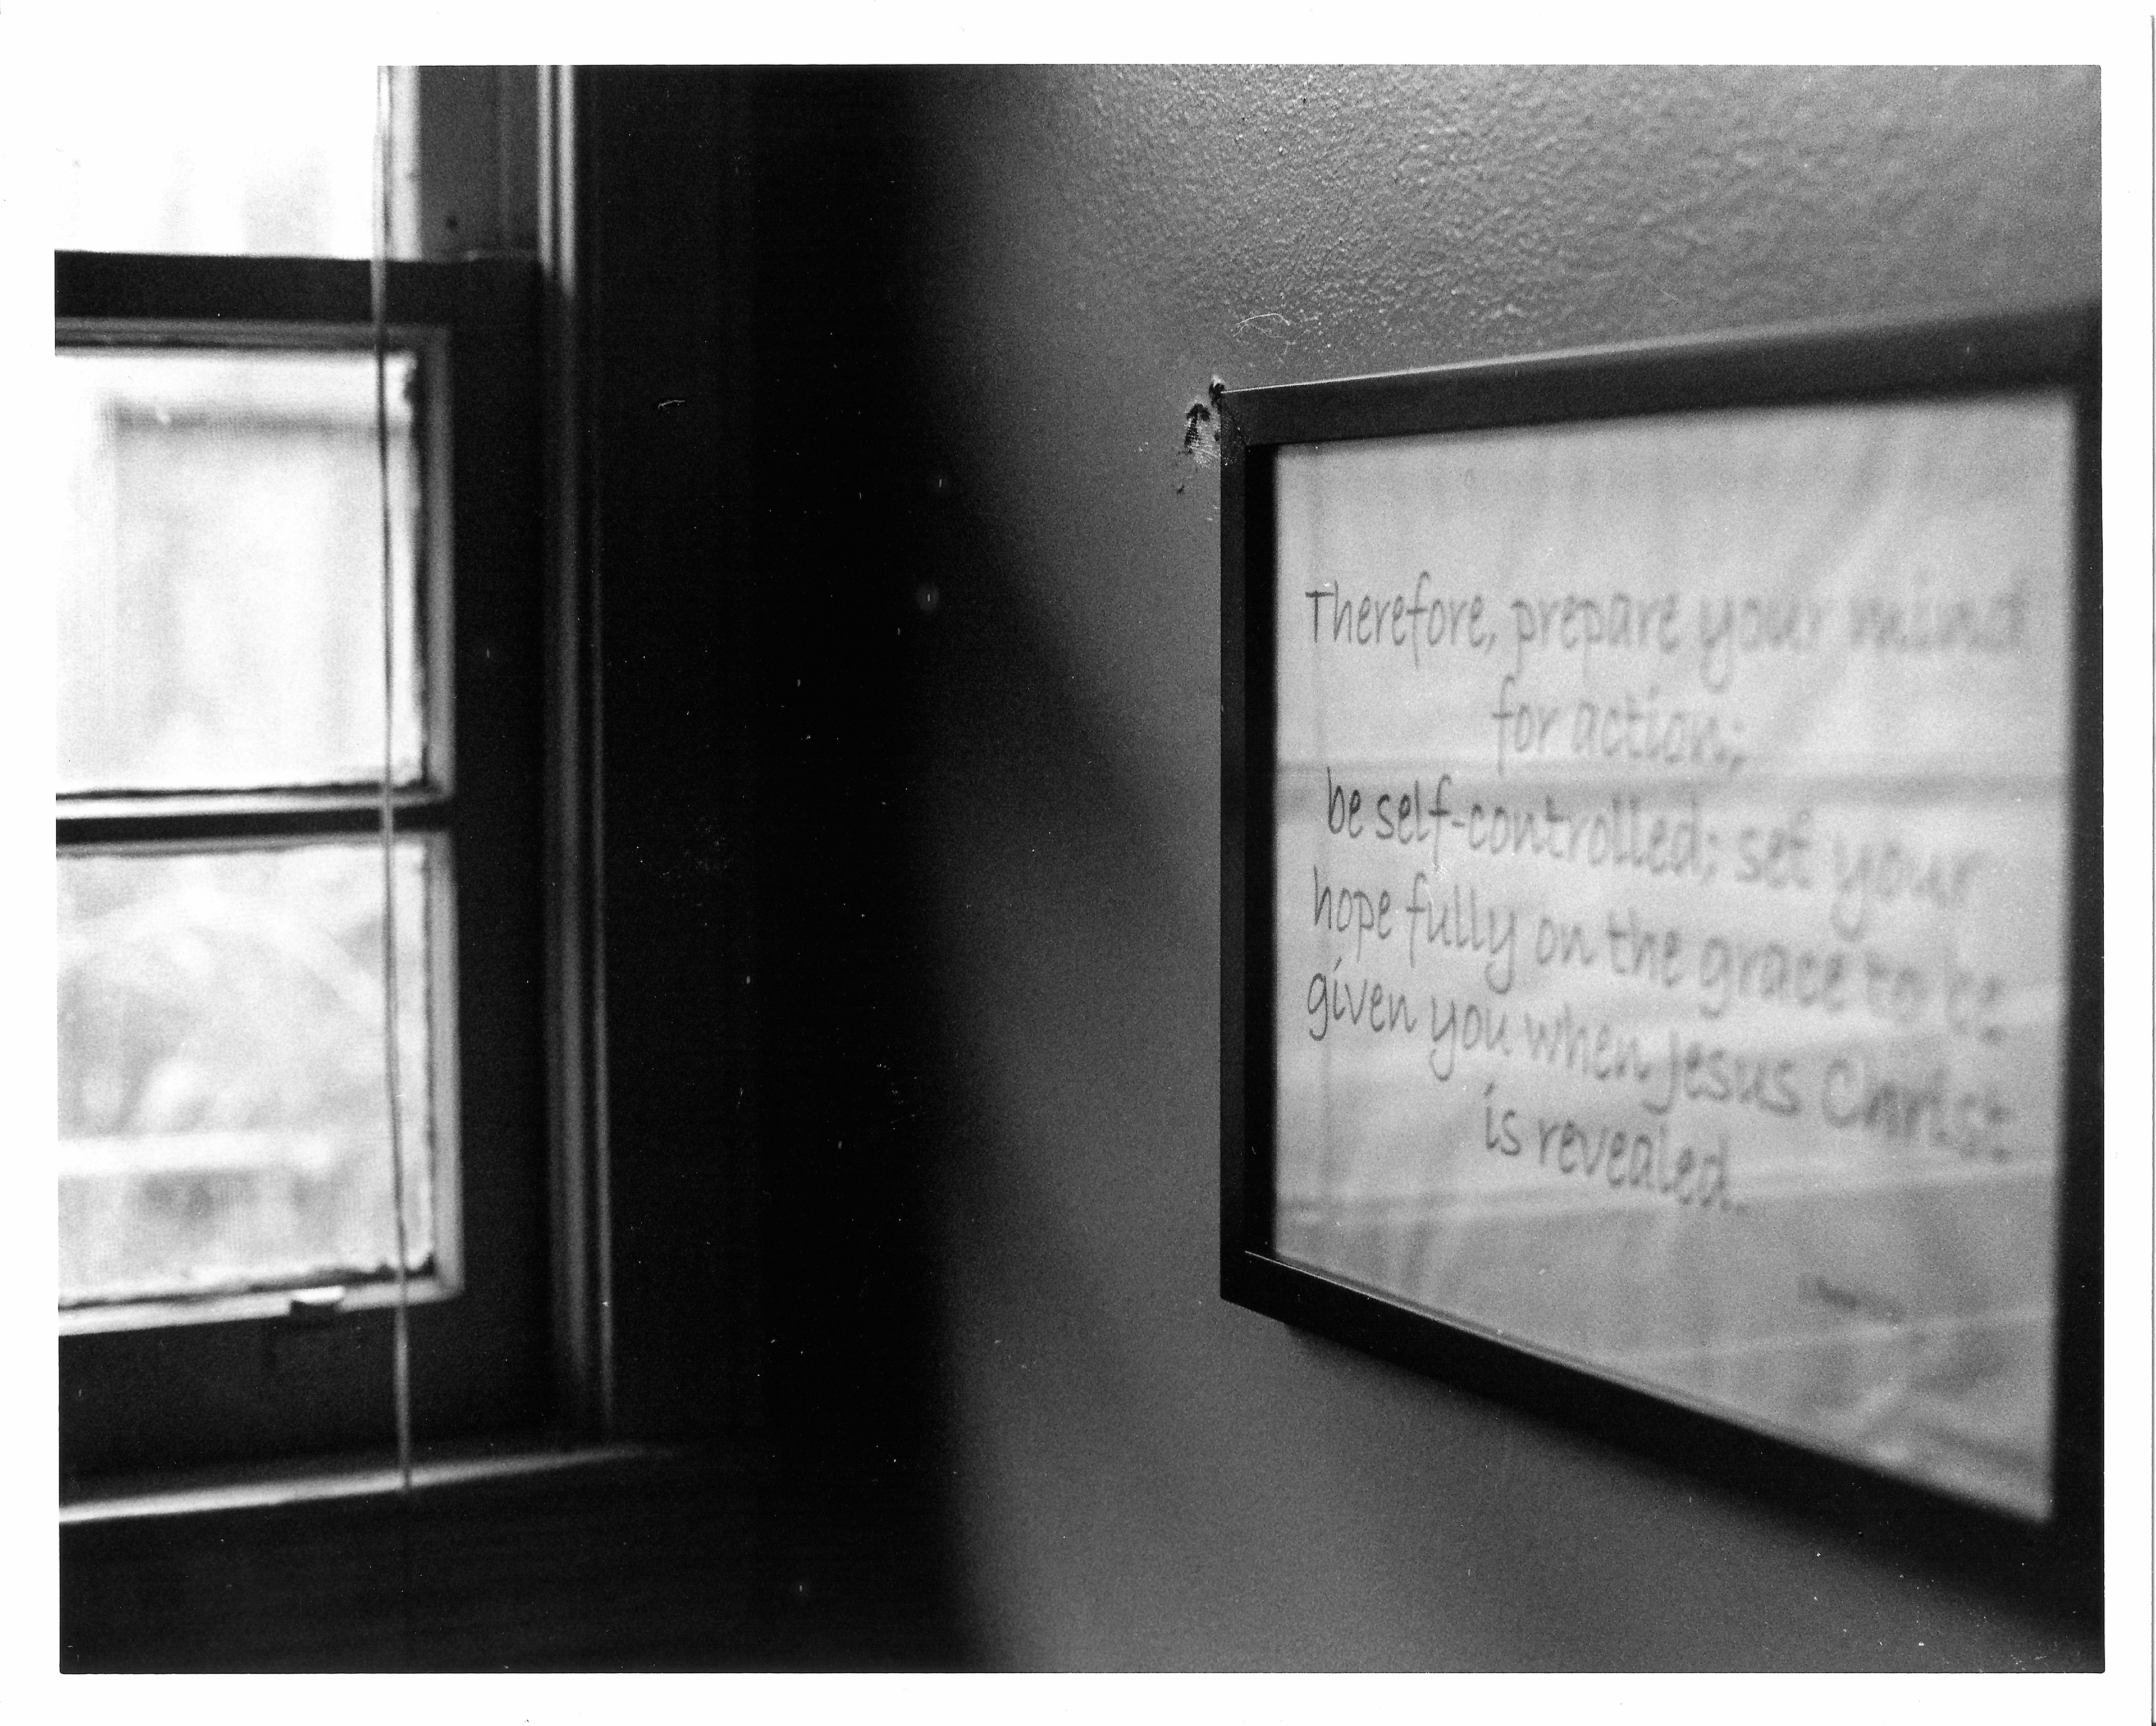 Therefore, prepare your mind
for action;
be self-controlled; set your
hope fully on the grace to be
given you when Jesus Christ
is revealed.